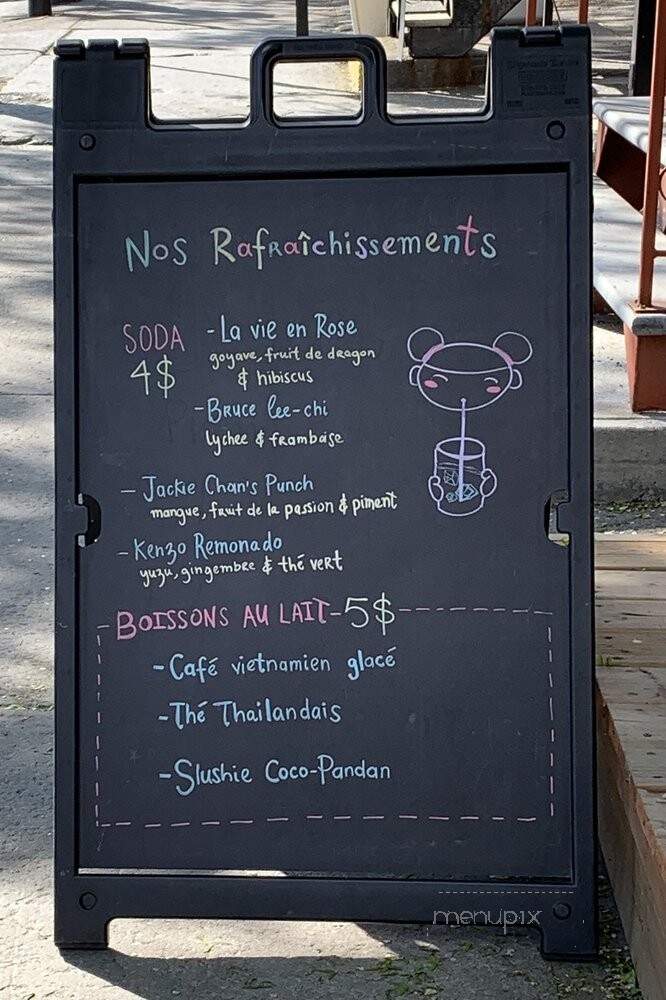 Nos Rafraîchissements
SODA
4$
- La vie en Rose
goyave, fruit de dragon
& hibiscus
- Bruce lee-chi
lychee & framboise
- Jackie Chan's Punch
mangue, fruit de la passion & piment
- Kenzo Remonado
yuzu, gingembre & thé vert
BOISSONS AU LAIT - 5$
- Café vietnamien glacé
- Thé Thailandais
- Slushie Coco-Pandan
menupix